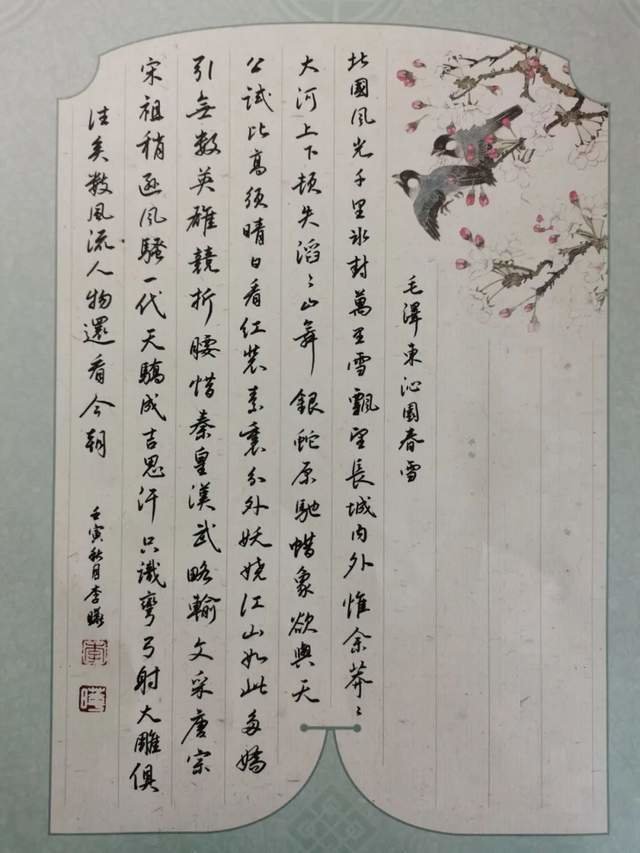 毛澤東沁園春雪
北國风光千里冰封萬里雪飄望長城内外惟余莽〻
大河上下頓失滔〻山舞銀蛇原馳蜡象欲與天
公試比高須晴日看红装素裹分外妖娆江山如此多嬌
引無數英雄競折腰惜秦皇漢武略輸文采唐宗
宋祖稍逊风騷一代天驕成吉思汗只識彎弓射大雕俱
往矣数風流人物還看今朝
壬寅秋月李
李